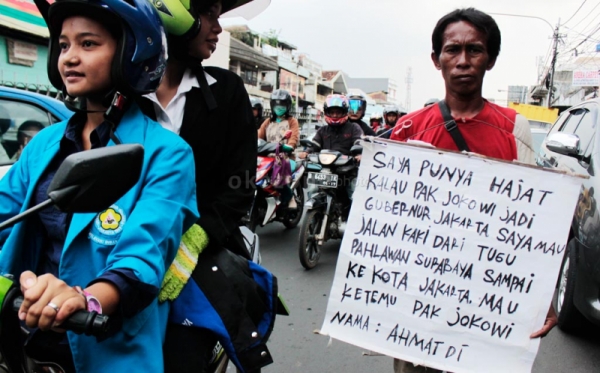 SAYA PUNYA HAJAT
KALAU PAK JOKOWI JADI
GUBERNUR JAKARTA SAYA MAU
JALAN KAKI DARI TUGU
PAHLAWAN SURABAYA SAMPAI
KE KOTA JAKARTA. MAU
KETEMU PAK JOKOWI
NAMA : AHMAT DI